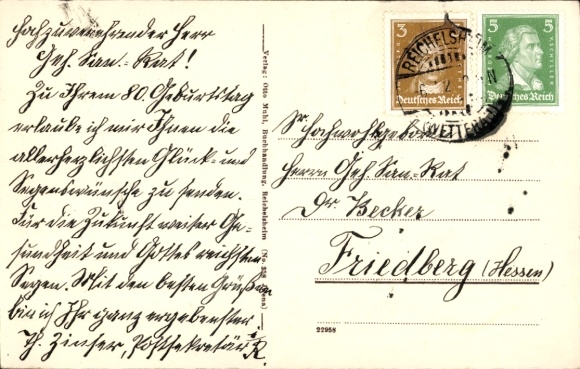 Hochzuverehrender Herr
Geh. San.-Rat!
Zu Ihrem 80. Geburtstag
erlaube ich mir Ihnen die
allerherzlichsten Glück- und
Segenswünsche zu senden.
Für die Zukunft weiter Ge-
sundheit und Gottes reichsten
Segen. Mit den besten Grüßen
bin ich Ihr ganz ergebenster
Th. Zinser, Postsekretär
Verlag: Otto Muhl, Buchhandlung, Reichelsheim
3
Deutsches Reich
5 5
F. v. SCHILLER
Deutsches Reich
REICHELSHEIM
(WETTERAU)
Sr. Hochwohlgeboren
Herrn Geh. San.-Rat
Dr. Becker
Friedberg (Hessen)
22958